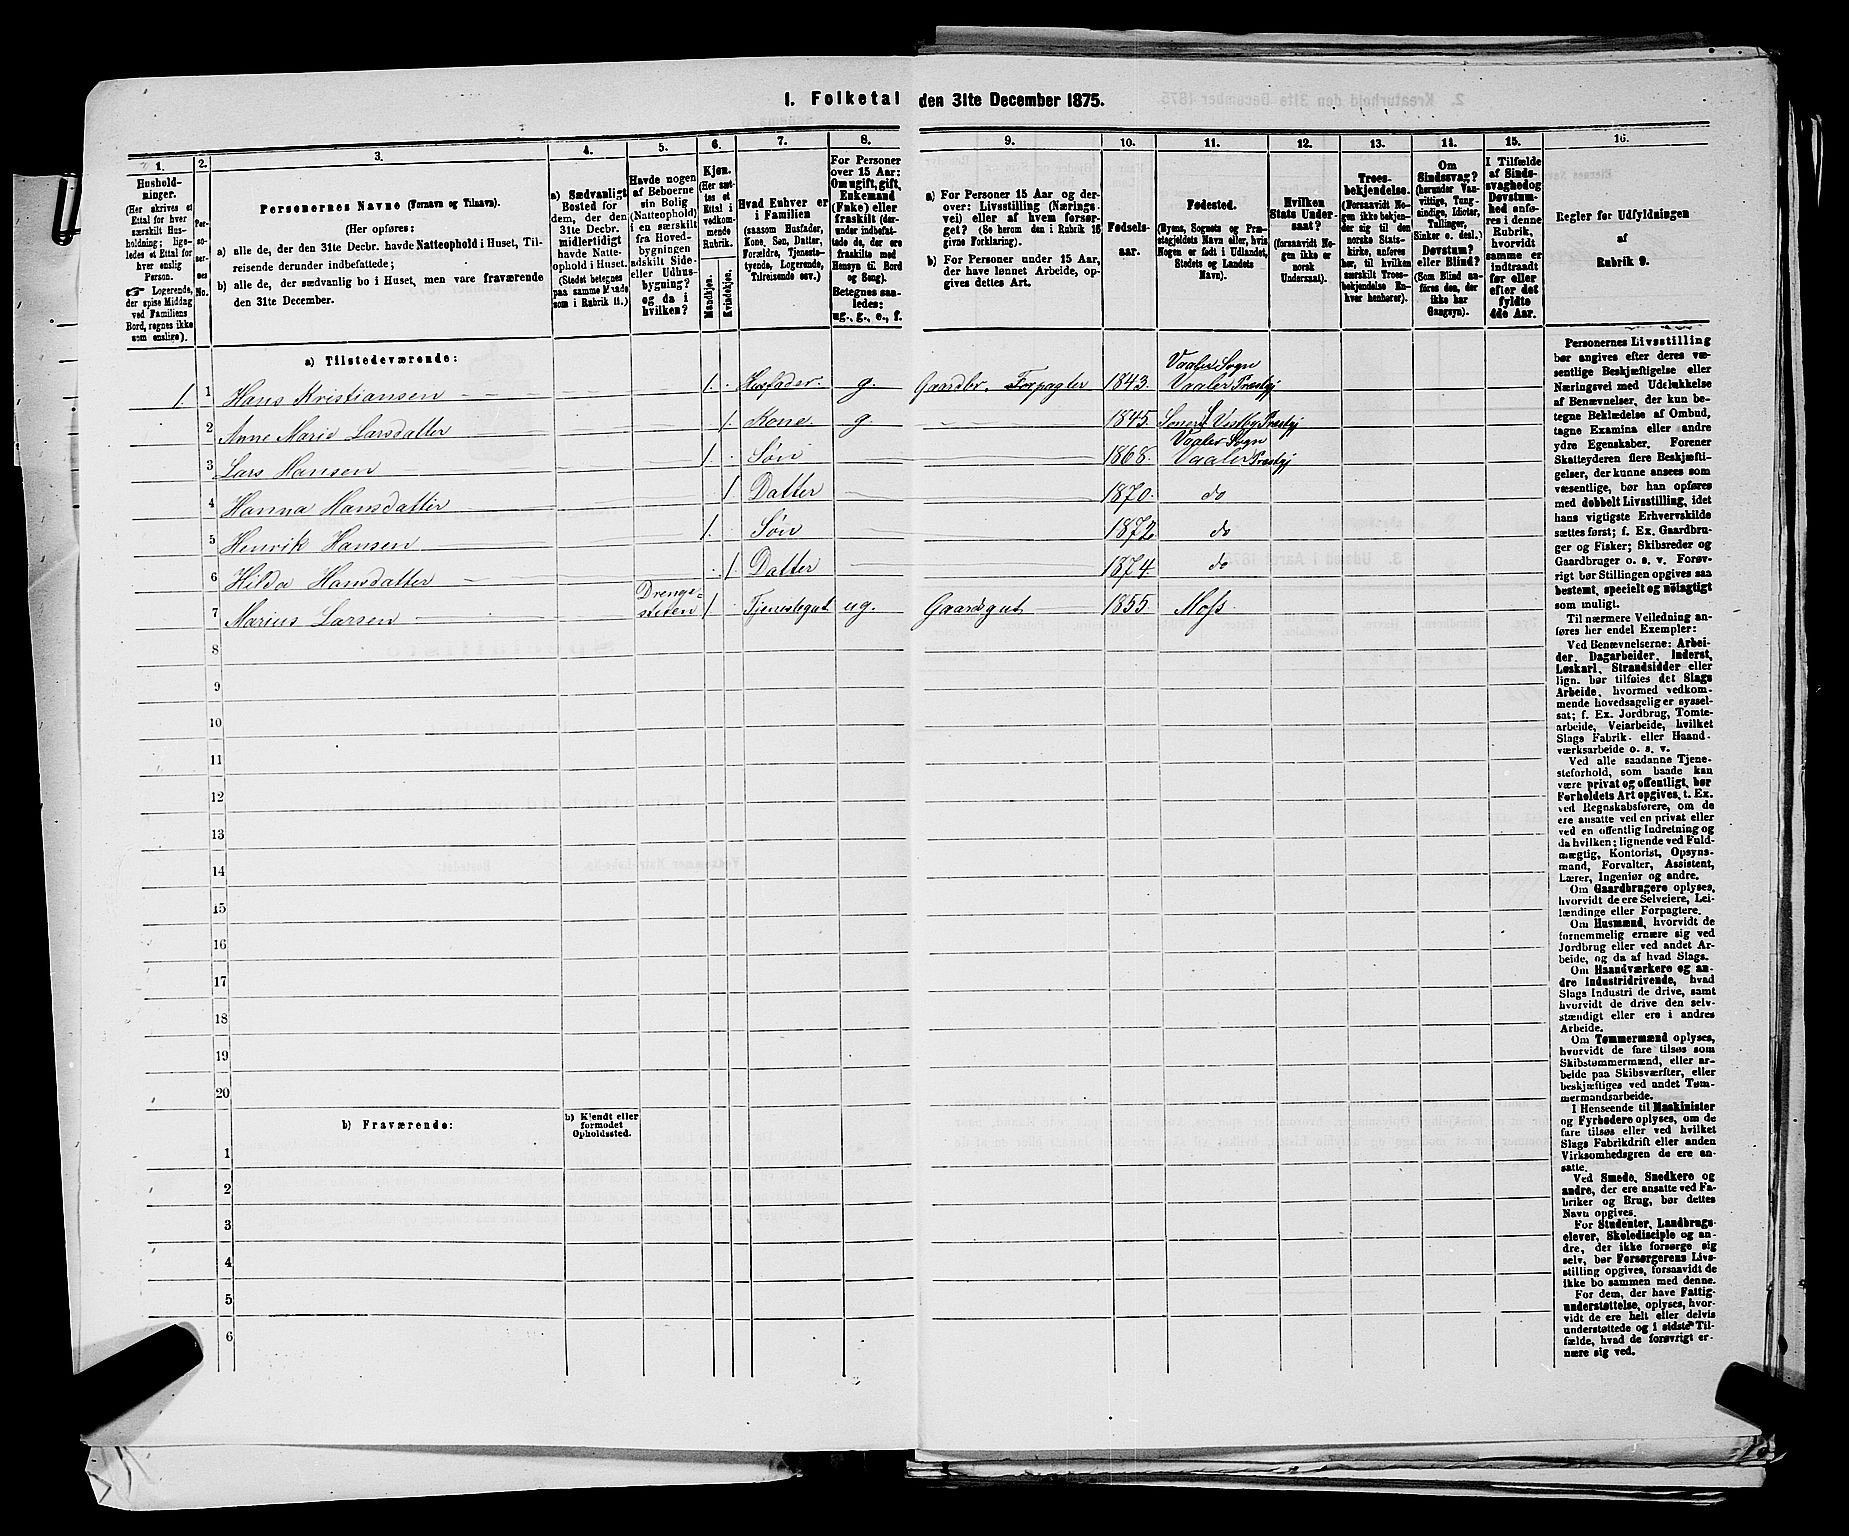 1. Folketal den 31te December 1875.
1.
Hushold-
ninger.
(Her skrives et
Ettal for hver
særskilt Hus-
holdning; lige-
ledes et Ettal for
hver enslig
Person.
☞ Logerende,
der spise Middag
ved Familiens
Bord, regnes ikke
som enslige).
2.
Per-
so-
ner-
nes
No.
3.
Personernes Navne (Fornavn og Tilnavn).
(Her opføres:
a) alle de, der den 31te Decbr. havde Natteophold i Huset, Til-
reisende derunder indbefattede;
b) alle de, der sædvanlig bo i Huset, men vare fraværende
den 31te December.
4.
a) Sædvanligt
Bosted for
dem, der den
31te Decbr.
midlertidigt
havde Natte-
ophold i Huset.
(Stedet betegnes
paa samme Maade
som i Rubrik 11.)
5.
Havde nogen
af Beboerne
sin Bolig
(Natteophold)
i en særskilt
fra Hoved-
bygningen
adskilt Side-
eller Udhus-
bygning?
og da i
hvilken?
6.
Kjøn.
(Her sæt-
tes et
Ettal i
vedkom-
mende
Rubrik.
Mandkjøn.
Kvindekjøn.
7.
Hvad Enhver er
i Familien
(saasom Husfader,
Kone, Søn, Datter,
Forældre, Tjeneste-
tyende, Logerende,
Tilreisende osv.)
8.
For Personer
over 15 Aar:
Om ugift, gift,
Enkemand
(Enke) eller
fraskilt (der-
under indbefat-
tede de, der ere
fraskilte med
Hensyn til Bord
og Seng).
Betegnes saa-
ledes:
ug., g., e., f.
9.
a) For Personer 15 Aar og der-
over: Livsstilling (Nærings-
vei) eller af hvem forsør-
get? (Se herom den i Rubrik 16
givne Forklaring).
b) For Personer under 15 Aar,
der have lønnet Arbeide, op-
gives dettes Art.
10.
Fødsels-
aar.
11.
Fødested.
(Byens, Sognets og Præ-
stegjeldets Navn eller, hvis
Nogen er født i Udlandet,
Stedets og Landets
Navn).
12.
Hvilken
Stats Under-
saat?
(forsaavidt No-
gen ikke er
norsk
Undersaat).
13.
Troes-
bekjendelse.
(Forsaavidt No-
gen ikke bekjen-
der sig til den
norske Stats-
kirke, anføres
her, til hvilken
særskilt Troes-
bekjendelse En-
hver henhører).
14.
Om
Sindssvag?
(herunder Van-
vittige, Tung-
sindige, Idioter,
Tullinger,
Sinker o. desl.)
Døvstum?
eller Blind?
(Som Blind an-
føres den, der
ikke har
Gangsyn).
15.
I Tilfælde
af Sinds-
svaghed og
Døvstum-
hed anfø-
res i denne
Rubrik,
hvorvidt
samme er
indtraadt
før eller
efter det
fyldte
4de Aar.
16.
Regler for Udfyldningen
af
Rubrik 9.
a) Tilstedeværende:
1 1 Hans Kristiansen 1. Husfader. g. Gaardbr. Forpagter 1843. Vaaler Sogn Vaaler Præstgj
2 Anne Marie Larsdatter 1. Kone. g. 1845. Soner S. Vestby Præstgj
3 Lars Hansen 1 Søn 1868. Vaaler Sogn Vaaler Præstgj
4 Hanna Hansdatter 1 Datter 1870. do
5 Henrik Hansen 1. Søn 1872. do
6 Hilda Hansdatter 1 Datter 1874. do
7 Marius Larsen Drenge-stuen 1 Tjenestegut ug. Gaardsgut 1855. Moss.
8
9
10
11
12
13
14
15
16
17
18
19
20
b) Fraværende:
b) Kjendt eller
formodet
Opholdssted.
1
2
3
4
5
6
Personernes Livsstilling
bør angives efter deres væ-
sentlige Beskjæftigelse eller
Næringsvei med Udelukkelse
af Benævnelser, der kun be-
tegne Beklædelse af Ombud,
tagne Examina eller andre
ydre Egenskaber. Forener
Skatteyderen flere Beskjæfti-
gelser, der kunne ansees som
væsentlige, bør han opføres
med dobbelt Livsstilling, idet
hans vigtigste Erhvervskilde
sættes først; f. Ex. Gaardbru-
ger og Fisker; Skibsreder og
Gaardbruger o. s. v. Forøv-
rigt bør Stillingen opgives saa
bestemt, specielt og nøiagtigt
som muligt.
Til nærmere Veiledning an-
føres her endel Exempler:
Ved Benævnelserne: Arbei-
der, Dagarbeider, Inderst,
Løskarl, Strandsidder eller
lign. bør tilføies det Slags
Arbeide, hvormed vedkom-
mende hovedsagelig er syssel-
sat; f. Ex. Jordbrug, Tomte-
arbeide, Veiarbeide, hvilket
Slags Fabrik- eller Haand-
værksarbeide o. s. v.
Ved alle saadanne Tjene-
steforhold, som baade kan
være privat og offentligt, bør
Forholdets Art opgives, t. Ex.
ved Regnskabsførere, om de
ere ansatte ved en privat eller
ved en offentlig Indretning og
da hvilken; lignende ved Fuld-
mægtig, Kontorist, Opsyns-
mand, Forvalter, Assistent,
Lærer, Ingeniør og andre.
Om Gaardbrugere oplyses,
hvorvidt de ere Selveiere, Lei-
lændinge eller Forpagtere.
Om Husmænd, hvorvidt de
fornemmelig ernære sig ved
Jordbrug eller ved andet Ar-
beide, og da af hvad Slags.
Om Haandværkere og an-
dre Industridrivende, hvad
Slags Industri de drive, samt
hvorvidt de drive den selv-
stændigt eller ere i andres
Arbeide.
Om Tømmermænd oplyses,
hvorvidt de fare tilsøs som
Skibstømmermænd, eller ar-
beide paa Skibsværfter, eller
beskjæftiges ved andet Tøm-
mermandsarbeide.
I Henseende til Maskinister
og Fyrbødere oplyses, om de
fare tilsøs eller ved hvilket
Slags Fabrikdrift eller anden
Virksomhedsgren de ere an-
satte.
Ved Smede, Snedkere og
andre, der ere ansatte ved Fa-
briker og Brug, bør dettes
Navn opgives.
For Studenter, Landbrugs-
elever, Skoledisciple og an-
dre, der ikke forsørge sig
selv, bør Forsørgerens Livs-
stilling opgives, forsaavidt de
ikke bo sammen med denne.
For dem, der have Fattig-
understøttelse, oplyses, hvor-
vidt de ere helt eller delvis
understøttede og i sidste Til-
fælde, hvad de forøvrigt er-
nære sig ved.